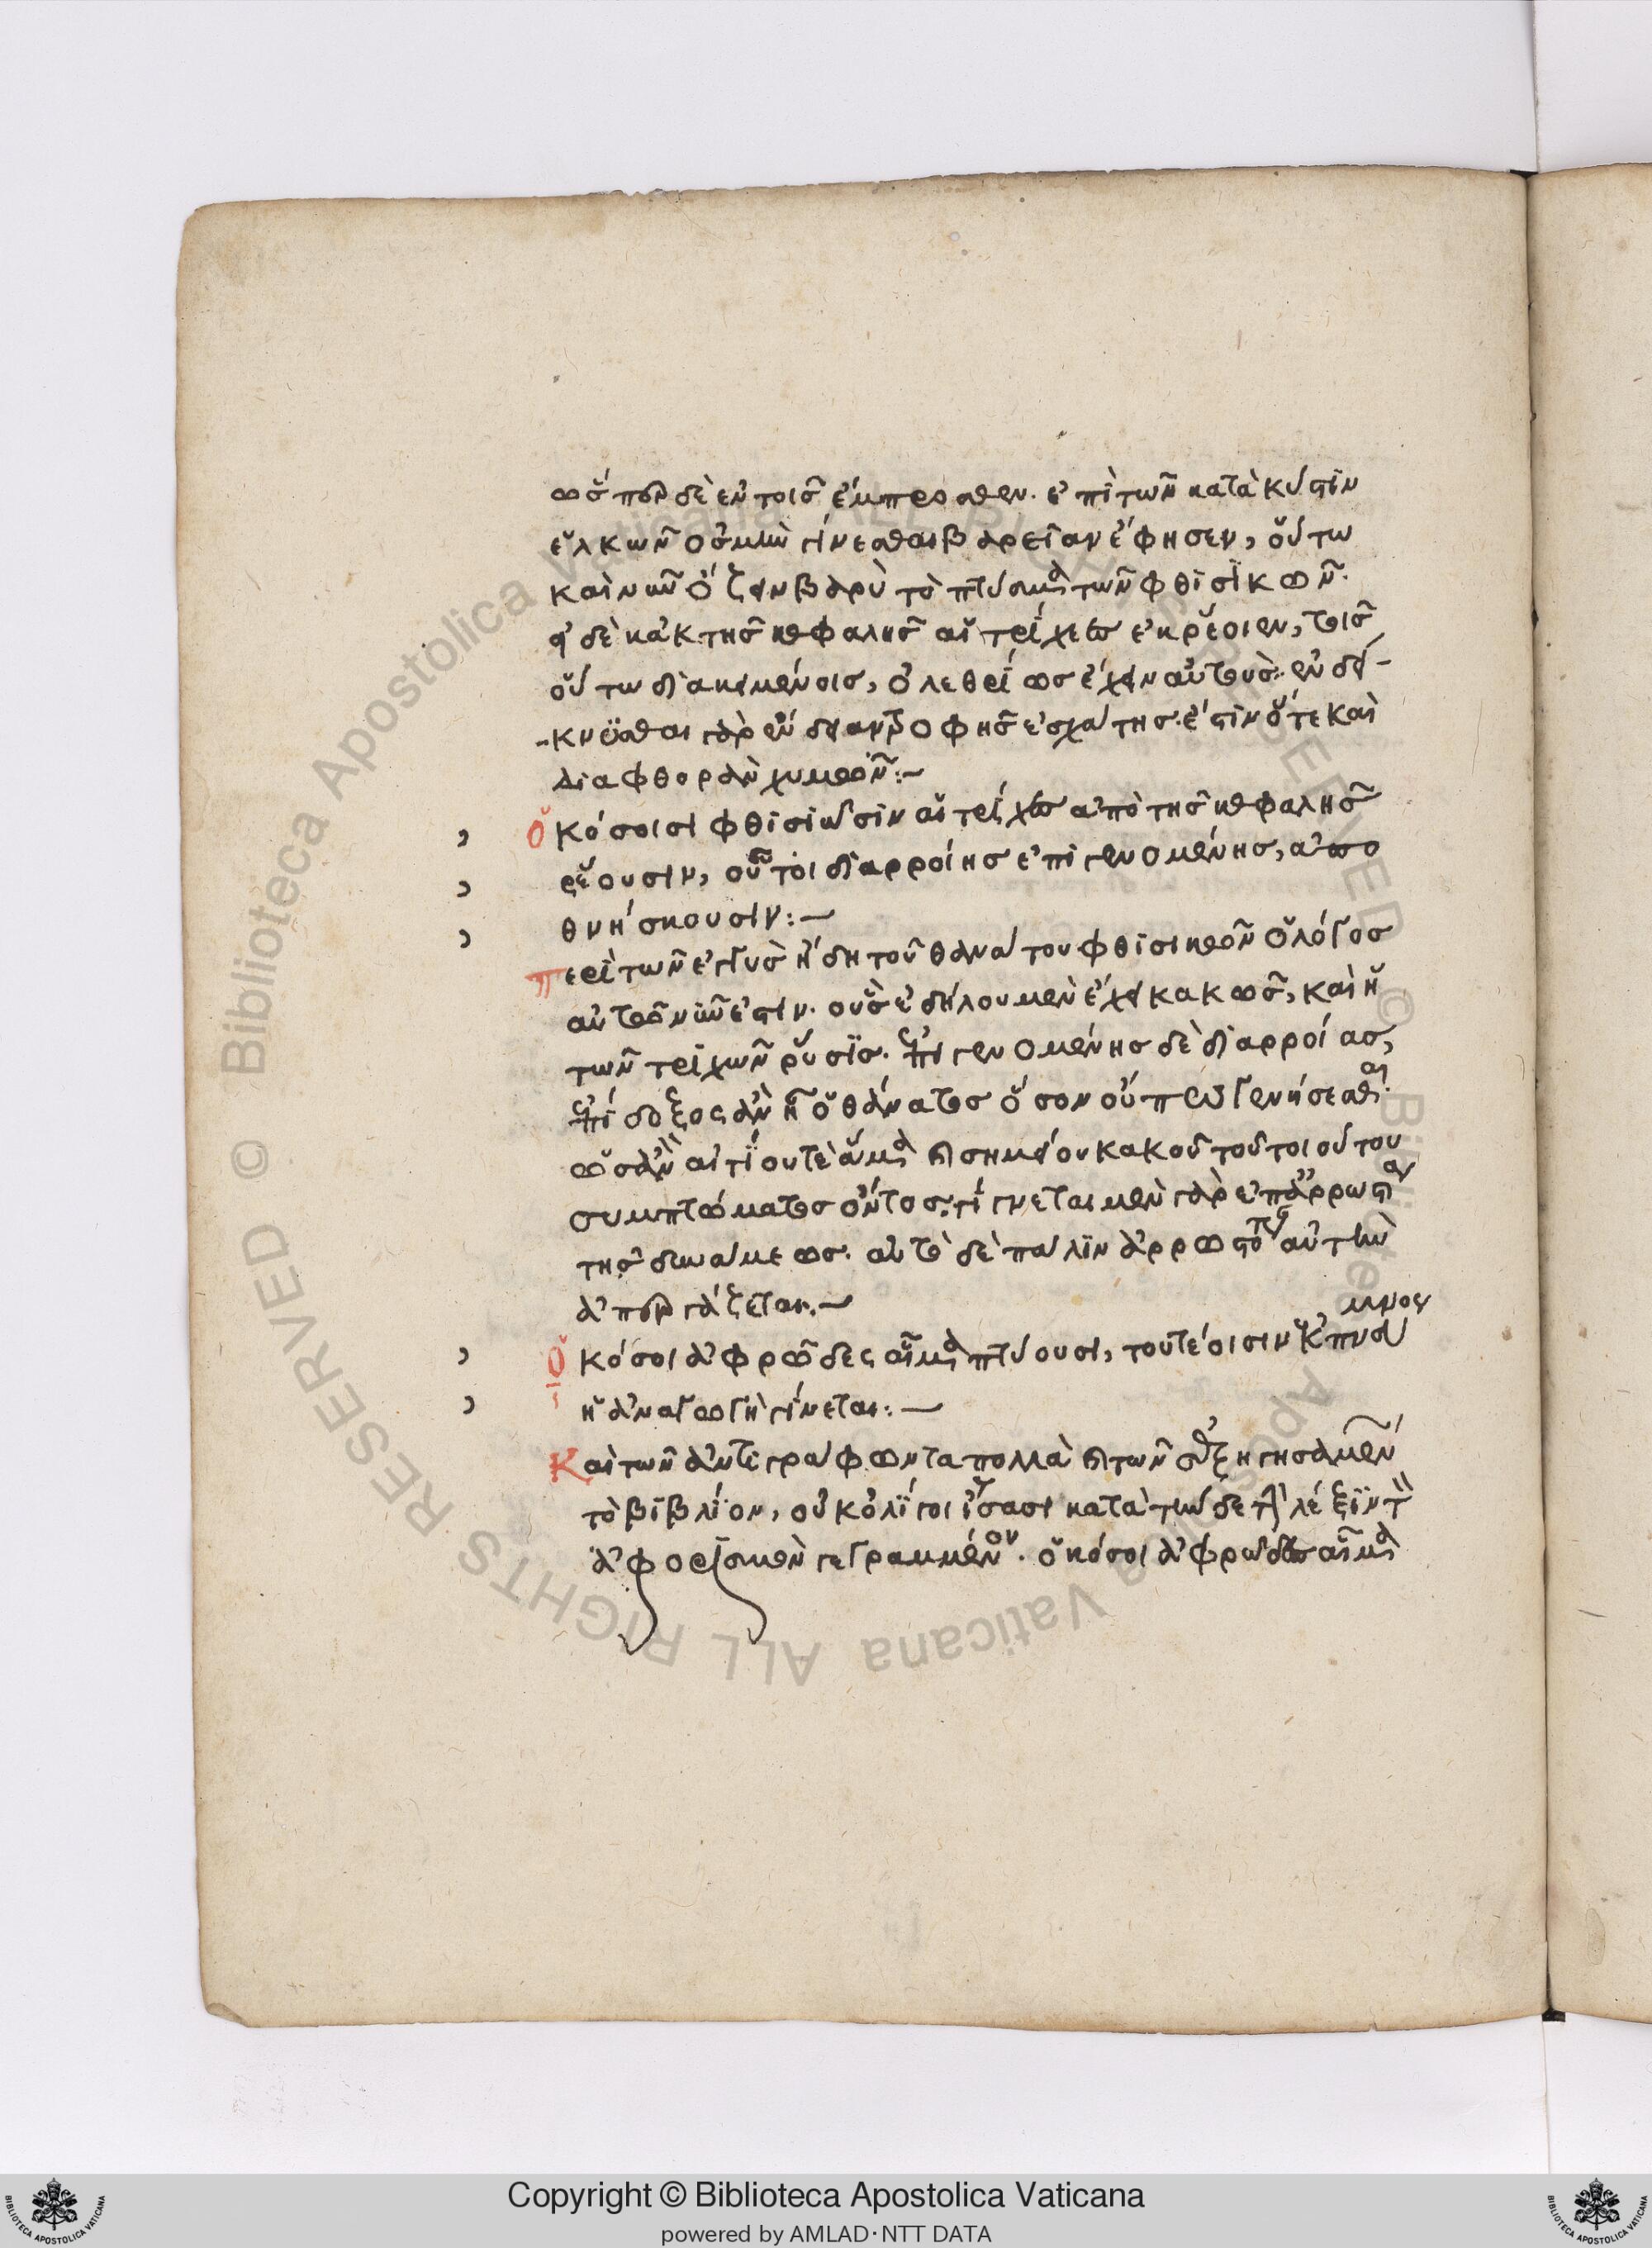 ὥσπερ δὲ ἐν τοῖς ἔμπροσθεν. ἐπὶ τῶν κατὰ κύστιν
ἑλκῶν ὀσμὴν γίνεσθαι βαρεῖαν ἔφησεν, οὕτω
καὶ νῦν ὄζειν βαρὺ τὸ πτύσμα τῶν φθισϊκῶν.
εἰ δὲ κἀκ τῆς κεφαλῆς αἱ τρίχες ἐκρέοιεν, τοῖς
οὕτω διακειμένοις, ὀλεθρίως ἔχειν αὐτούς. ἐνδεί-
-κνυσθαι γὰρ ἔνδειαν τροφῆς ἐσχάτης. ἔστιν ὅτε καὶ
διαφθορὰν χυμῶν:~
Ὁκόσοισι φθισιῶσιν αἱ τρίχες ἀπὸ τῆς κεφαλῆς
ῥέουσιν, οὗτοι διαρροίης ἐπιγενομένης, ἀπο
θνήσκουσιν:~
Περὶ τῶν ἐγγὺς ἤδη τοῦ θανάτου φθισικῶν ὁ λόγος
αὐτῶ νῦν ἐστιν. οὓς ἐδήλου μὲν ἔχειν κακῶς, καὶ ἡ
τῶν τριχῶν ῥύσϊς. ἐπιγενομένης δὲ διαρροίας,
ἐπίδοξος ἂν ἦ ὁ θάνατος ὅσον οὔπω γενήσεσθαι.
ὡσὰν αἰτίου τε ἅμα καὶ σημείου κακοῦ τοῦ τοιούτου
συμπτώματος ὄντος. γίνεται μὲν γὰρ ἐπ' ἀρρωστίαν
τῆς δυνάμεως. αὐτὸ δὲ πάλιν ἀρρωστοτέραν αὐτὴν
ἀπεργάζεται:~
Ὁκόσοι ἀφρῶδες αἷμα πτύουσι, τουτέοισιν ἐκ πνεύμονος
ἡ ἀναγωγὴ γίνεται:~
Καὶ τῶν ἀντιγράφων τὰ πολλὰ καὶ τῶν ἐξηγησαμένων
τὸ βιβλίον, οὐκ ὀλίγοι ἴσασι κατὰ τήνδε τὴν λέξϊν τὸν
ἀφορισμὸν γεγραμμένον. ὁκόσοι ἀφρῶδες αἷμα